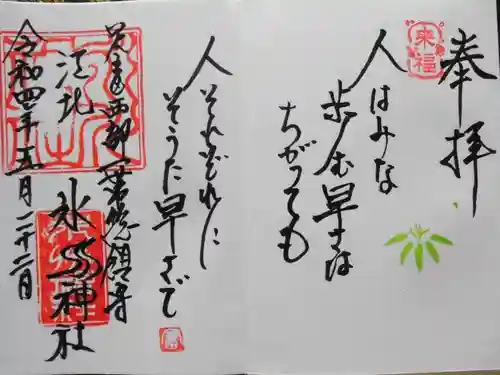 奉拝
来福
人はみな
歩む早さは
ちがっても
人それぞれに
そうた早さで
西部一 総領守
江北
氷川神社
令和四年五月二十二日